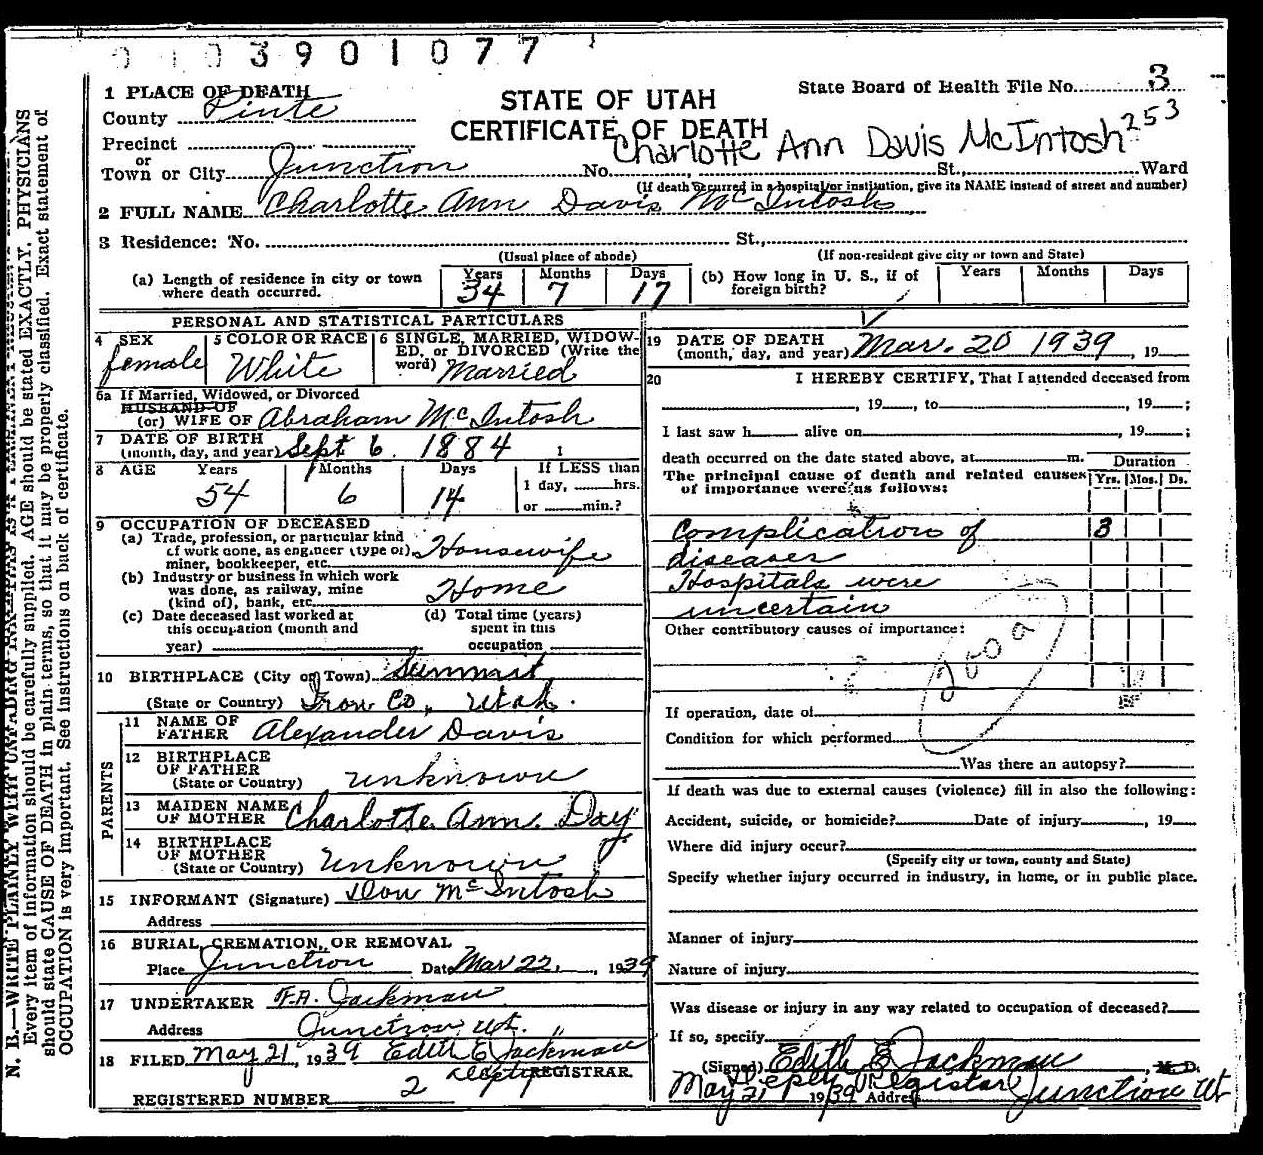 0 1 0 3 9 0 1 0 7 7
1 PLACE OF DEATH
County Piute
STATE OF UTAH
CERTIFICATE OF DEATH
State Board of Health File No. 3
253
Charlotte Ann Davis McIntosh
Precinct
or
Town or City Junction No. St., Ward
(If death occurred in a hospital or institution, give its NAME instead of street and number)
2 FULL NAME Charlotte Ann Davis McIntosh
3 Residence: No. St.,
(Usual place of abode) (If non-resident give city or town and State)
(a) Length of residence in city or town where death occurred. Years 34 Months 7 Days 17
(b) How long in U. S., if of foreign birth? Years Months Days
PERSONAL AND STATISTICAL PARTICULARS
4 SEX female
5 COLOR OR RACE White
6 SINGLE, MARRIED, WIDOWED, or DIVORCED (Write the word) Married
6a If Married, Widowed, or Divorced
HUSBAND OF
(or) WIFE OF Abraham McIntosh
7 DATE OF BIRTH
(month, day, and year) Sept 6. 1884 1
8 AGE Years 54 Months 6 Days 14
If LESS than
1 day, hrs.
or min.?
9 OCCUPATION OF DECEASED
(a) Trade, profession, or particular kind
of work done, as engineer (type of)
miner, bookkeeper, etc. Housewife
(b) Industry or business in which work
was done, as railway, mine
(kind of), bank, etc. Home
(c) Date deceased last worked at
this occupation (month and
year)
(d) Total time (years)
spent in this
occupation
10 BIRTHPLACE (City or Town) Summit
(State or Country) Iron Co, Utah.
PARENTS
11 NAME OF FATHER Alexander Davis
12 BIRTHPLACE OF FATHER
(State or Country) unknown
13 MAIDEN NAME OF MOTHER Charlotte Ann. Day
14 BIRTHPLACE OF MOTHER
(State or Country) Unknown
15 INFORMANT (Signature) Don McIntosh
Address
16 BURIAL, CREMATION, OR REMOVAL
Place Junction Date Mar 22, 1939
17 UNDERTAKER F.A. Jackman
Address Junction Ut. "
18 FILED May 21, 1939 Edith E Jackman
Depty REGISTRAR.
REGISTERED NUMBER 2
19 DATE OF DEATH
(month, day, and year) Mar. 20 1939, 19
20 I HEREBY CERTIFY, That I attended deceased from
, 19 , to , 19 ;
I last saw h alive on , 19 ;
death occurred on the date stated above, at m.
The principal cause of death and related causes
of importance were as follows:
Duration
Yrs. Mos. Ds.
Complication of 3
diseases
Hospitals were
uncertain
Other contributory causes of importance:
200a
If operation, date of
Condition for which performed
Was there an autopsy?
If death was due to external causes (violence) fill in also the following:
Accident, suicide, or homicide? Date of injury , 19
Where did injury occur?
(Specify city or town, county and State)
Specify whether injury occurred in industry, in home, or in public place.
Manner of injury
Nature of injury
Was disease or injury in any way related to occupation of deceased?
If so, specify
(Signed) Edith E Jackman, M. D.
Depty Registar
May 21 1939 Address Junction Ut
N. B.—WRITE PLAINLY WITH UNFADING INK
Every item of information should be carefully supplied. AGE should be stated EXACTLY. PHYSICIANS
should state CAUSE OF DEATH in plain terms, so that it may be properly classified. Exact statement of
OCCUPATION is very important. See instructions on back of certificate.